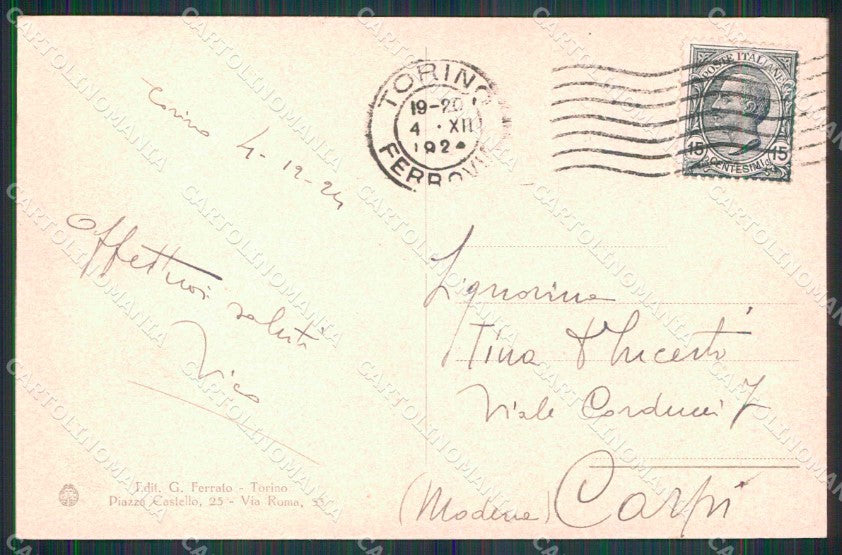 Torino 4-12-24
Affettuosi saluti
Vico
Edit. G. Ferrato - Torino
Piazza Castello, 25 - Via Roma, 33
TORINO
19-20
4 · XII
1924
FERROVIA
POSTE ITALIANE
15 15
CENTESIMI
Signorina
Tina D'Incerti
Viale Carducci 7
Carpi
(Modena)
CARTOLINOMANIA